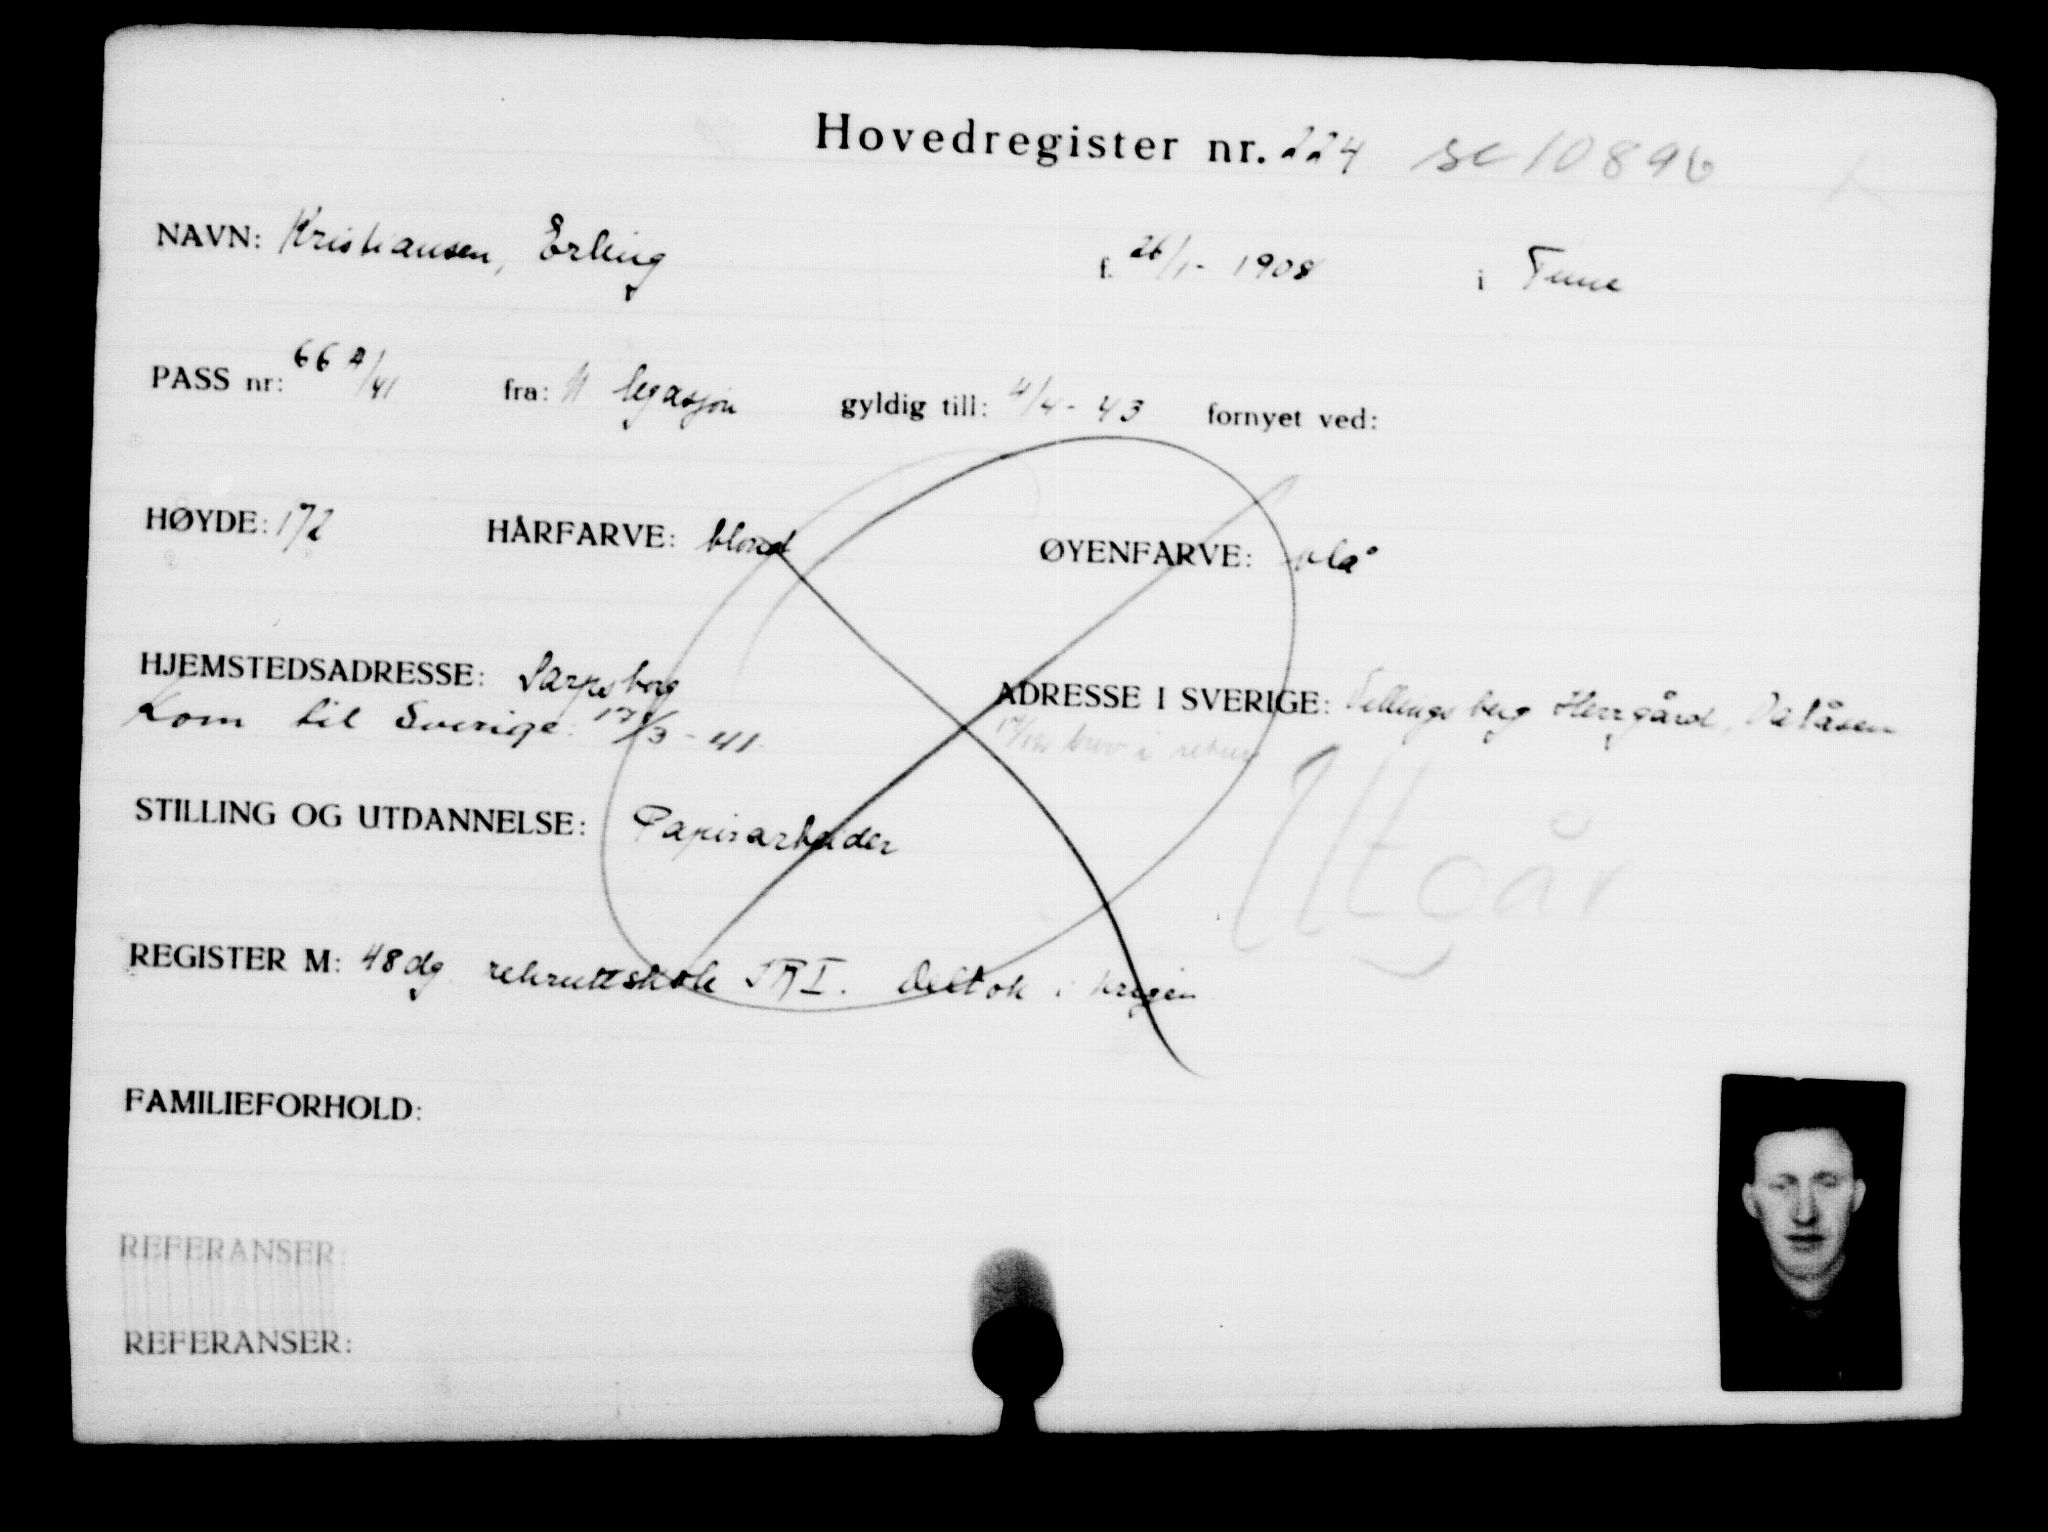 Hovedregister nr. 224 sc 10896
NAVN: Kristiansen, Erling f. 26/1- 1908 i Tune
PASS nr: 66 A/41 fra: N legasjon gyldig till: 4/4- 43 fornyet ved:
HØYDE: 172 HÅRFARVE: blond ØYENFARVE: blå
HJEMSTEDSADRESSE: Sarpsborg ADRESSE I SVERIGE: Herrgård, Dalåsen
Kom til Sverige: 17/3 - 41. brev i retur
STILLING OG UTDANNELSE: Papirarbeider
Utgår
REGISTER M: 48 dg. rekruttskole IR I. Deltok i krigen
FAMILIEFORHOLD:
REFERANSER:
REFERANSER: